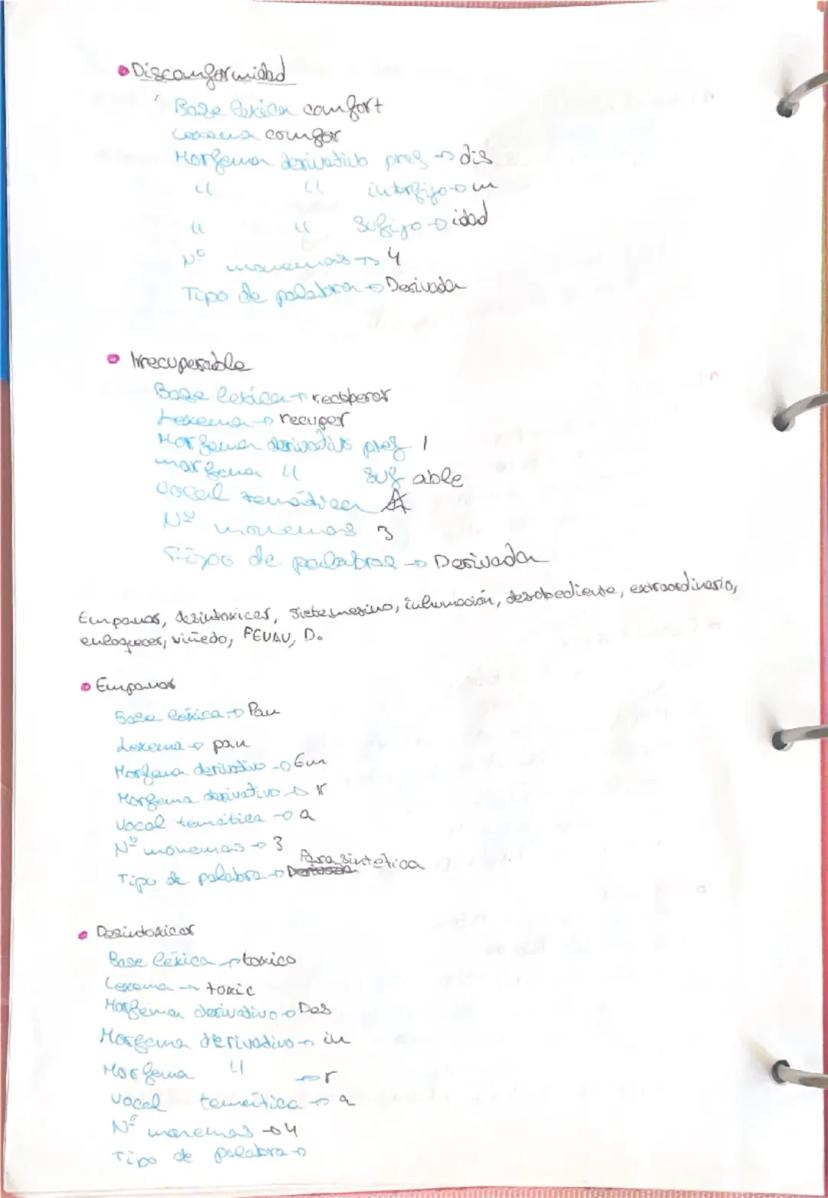 Disconformidad
Base léxica comfort
Lexema comfor
Morfema derivativo pref → dis
" " interfijo → m
" " Sufijo → idad
Nº monemas → 4
Tipo de palabra → Derivada
Irrecuperable
Base léxica → recuperar
Lexema → recuper
Morfema derivativo pref I
morfema " suf able
vocal temática A
Nº monemas 3
Tipo de palabras → Derivada
Empanar, desintoxicar, sietemesino, inhumación, desobediente, extraordinario,
enloquecer, viñedo, D.
Empanar
Base léxica → Pan
Lexema → pan
Morfema derivativo → Em
Morfema derivativo → r
Vocal temática → a
Nº monemas → 3
Tipo de palabra → Parasintética
Desintoxicar
Base léxica → toxico
Lexema → toxic
Morfema derivativo → Des
Morfema derivativo → in
Morfema " → r
Vocal temática → a
Nº monemas → 4
Tipo de palabra →